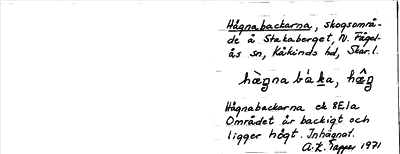 Hågnabackarna, skogsområ-
de å Stakaberget, N. Fågel-
ås sn, Kåkinds hd, Skar.l.
hågna
Hågnabackarna ek 8E1a
Området är backigt och
ligger högt. Inhägnat.
A.K. Tapper 1971